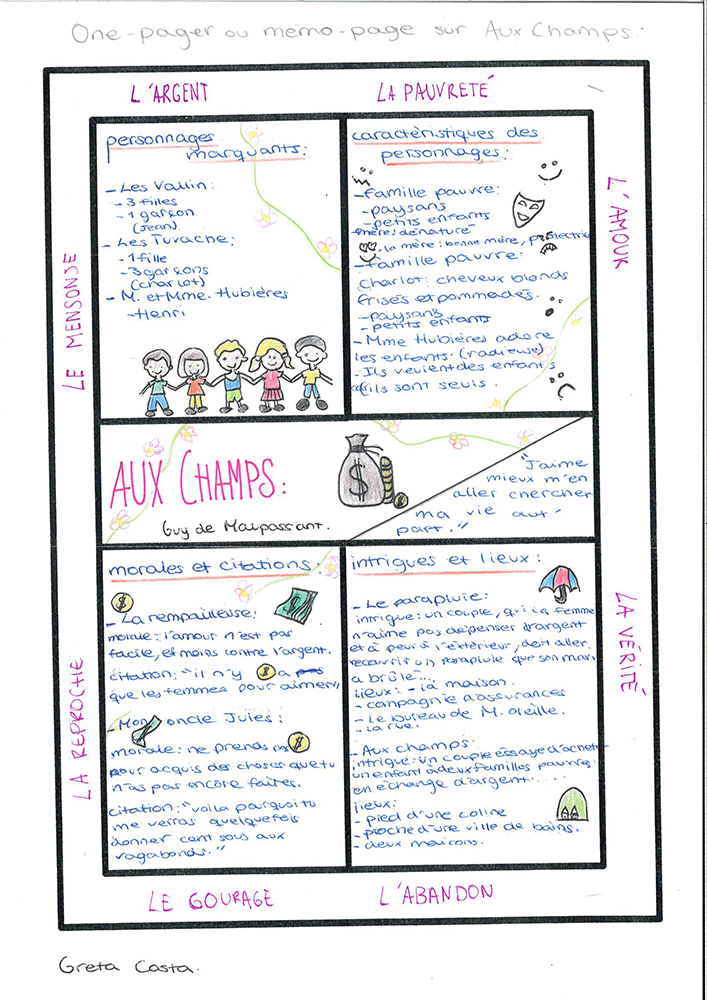 One-pager ou mémo-page sur Aux Champs:
L'ARGENT
LA PAUVRETÉ
LE MENSONJE
L'AMOUR
personnages
marquants:
- Les Vallin:
- 3 filles
- 1 garson
(Jean)
- Les Tuvache:
- 1 fille
- 3 garsons
(charlot)
- M. et Mme. Hubières
- Henri
caractéristiques des
personnages:
- famille pauvre:
- paysans
- petits enfants
mère: dénaturé
- la mère: bonne mère, protectrice
- famille pauvre:
charlot: cheveux blonds
frisés et pommadés.
- paysans
- petits enfants
- Mme Hubières adore
les enfants. (radieuse)
- Ils veulent des enfants
ils sont seuls.
AUX CHAMPS:
Guy de Maupassant.
"J'aime
mieux m'en
aller chercher
ma vie aut-
part."
morales et citations:
- La rempailleuse:
morale: l'amour n'est pas
facile, et moins contre l'argent.
citation: "il n'y a pas
que les femmes pour aimer"
- Mon oncle Jules:
morale: ne prends pas
pour acquis des choses que tu
n'as pas encore faites.
citation: "voila pourquoi tu
me verras quelquefois
donner cent sous aux
vagabonds."
intrigues et lieux:
- Le parapluie:
intrigue: un couple, qui la femme
n'aime pas dépenser d'argent
et à peur à l'extérieur, doit aller
recouvrir un parapluie que son mari
a brûlé...
lieux: - la maison.
- campagnie d'assurances
- Le bureau de M. Oreille.
- La rue.
- Aux champs:
intrigue: un couple essaye d'acheter
un enfant à deux familles pauvres
en échange d'argent....
lieux:
- pied d'une coline
- proche d'une ville de bains.
- deux maisons.
LA REPROCHE
LA VÉRITÉ
LE COURAGE
L'ABANDON
Greta Costa.